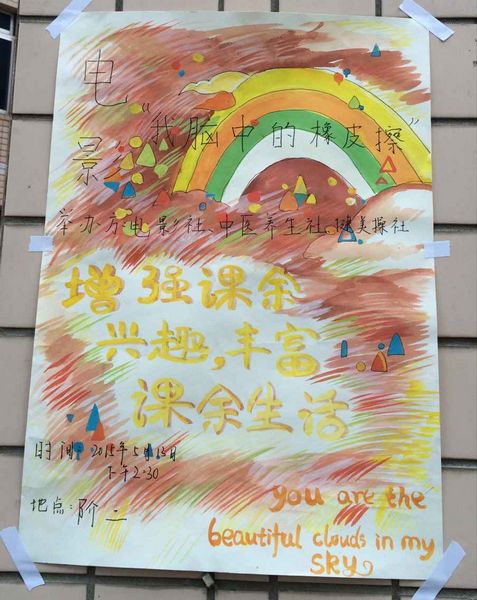 电影
“我脑中的橡皮擦”
举办方:电影社、中医养生社、健美操社
增强课余
兴趣,丰富
课余生活
时间:2015年5月13日
下午2:30
地点:阶二
you are the
beautiful clouds in my
sky